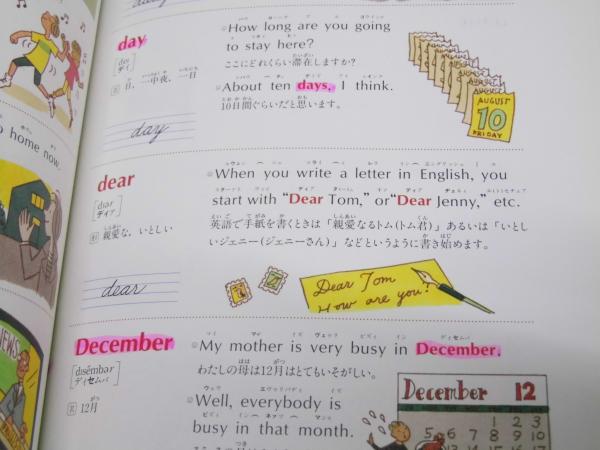 day
[dei
デイ]
名 日，一中夜，一日
day
How long are you going
to stay here?
ここにどれくらい滞在しますか?
About ten days, I think.
10日間ぐらいだと思います。
AUGUST
10
FRIDAY
o home now.
dear
[diər
ディア]
形 親愛な，いとしい
dear
When you write a letter in English, you
start with “Dear Tom,” or “Dear Jenny,” etc.
英語で手紙を書くときは「親愛なるトム(トム君)」あるいは「いとし
いジェニー(ジェニーさん)」などというように書き始めます。
Dear Tom
How are you?
December
[disémbər
ディセムバ]
名 12月
My mother is very busy in December.
わたしの母は12月はとてもいそがしい。
Well, everybody is
busy in that month.
December 12
1 2 3
5 6 7 8 9 10
EWS